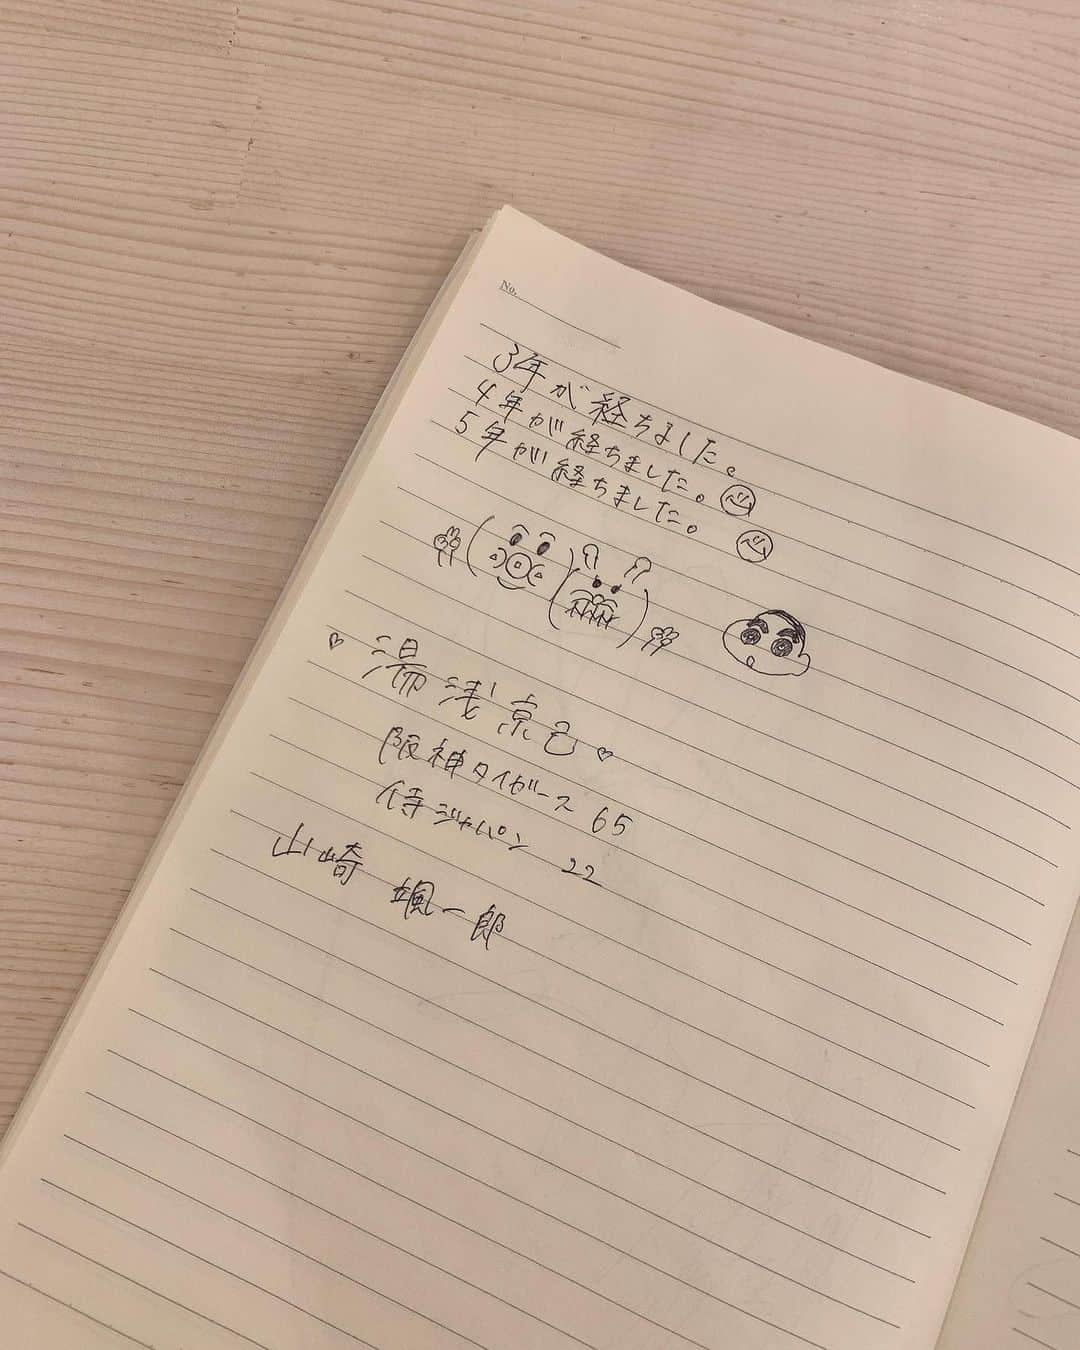 No.
3年が経ちました。
4年が経ちました。
5年が経ちました。
♡湯浅京己♡
阪神タイガース 65
侍ジャパン 22
山崎 颯一郎